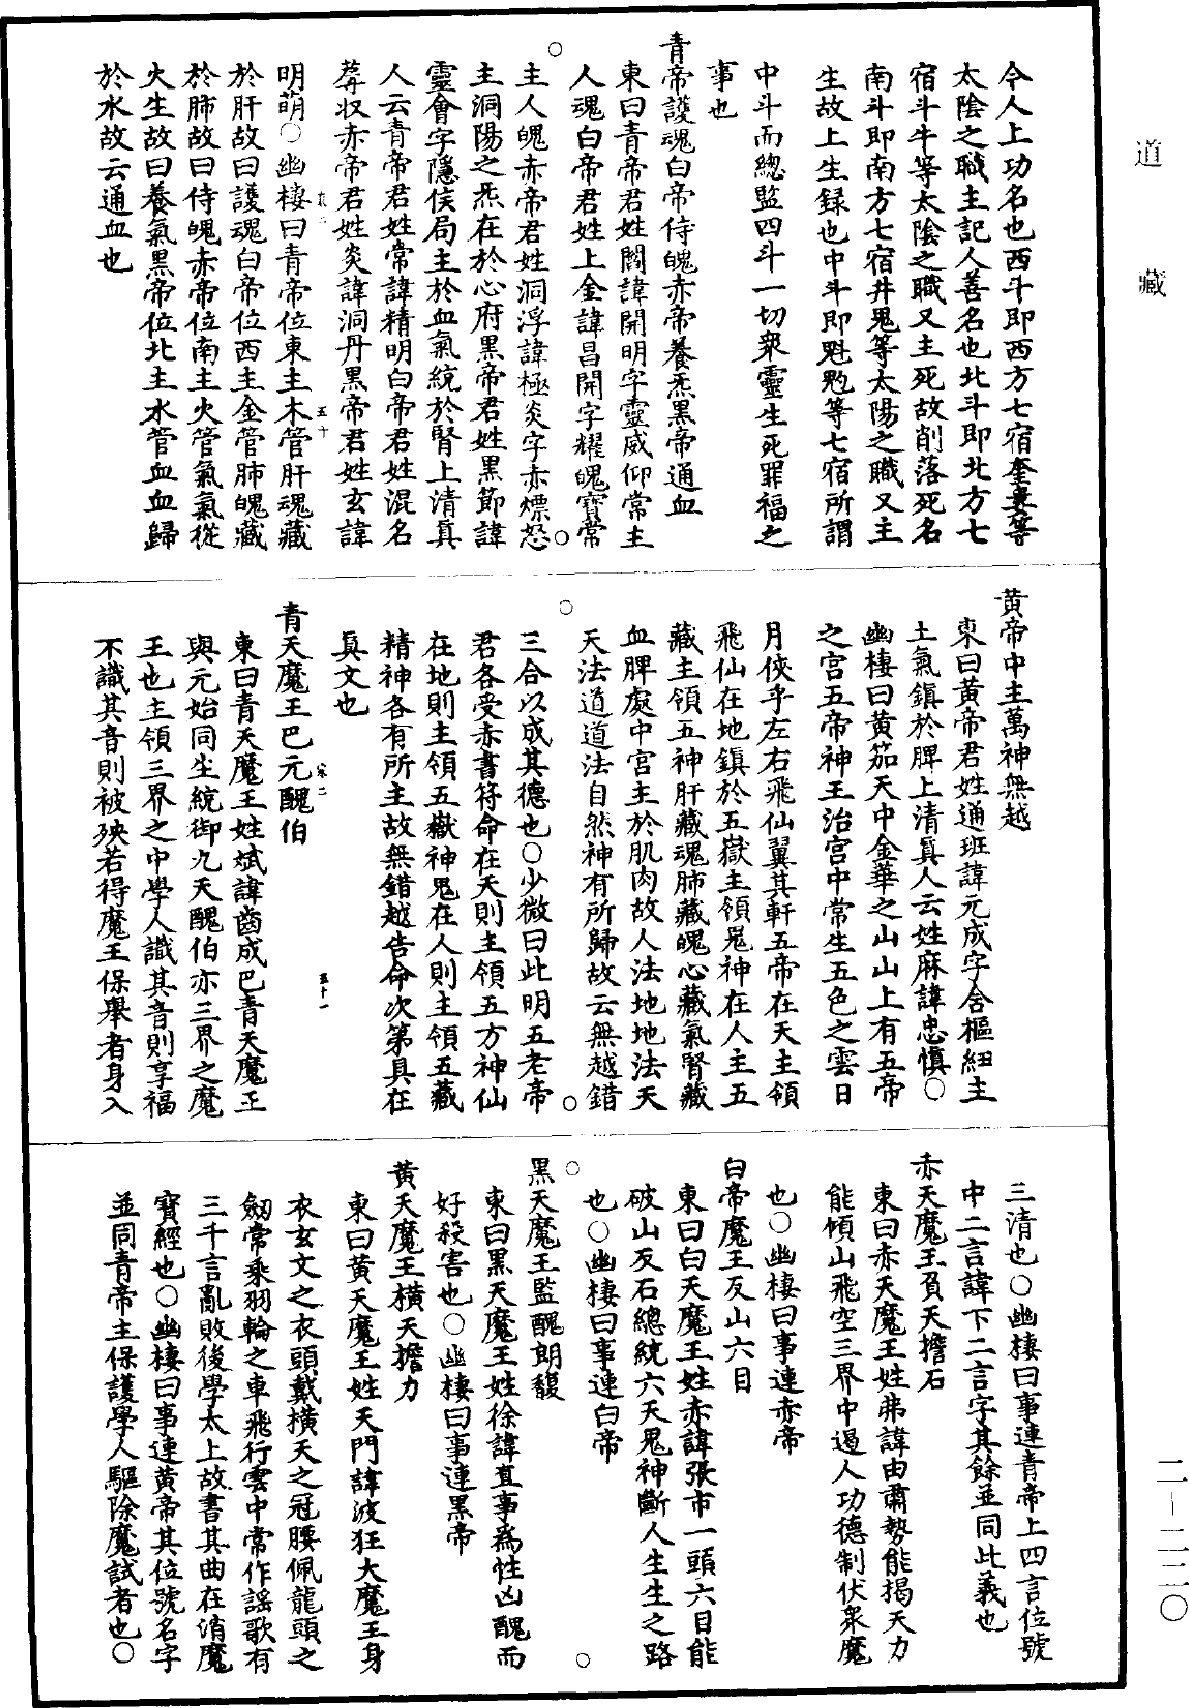 道藏
令人上功名也西斗即西方七宿奎婁等
太陰之職主記人善名也北斗即北方七
宿斗牛等太陰之職又主死故削落死名
南斗即南方七宿井鬼等太陽之職又主
生故上生録也中斗即魁魁等七宿所謂
中斗而總監四斗一切衆靈生死罪福之
事也
青帝護魂白帝侍魄赤帝養炁黑帝通血
東曰青帝君姓閻諱開明字靈威仰常主
人魂白帝君姓上金諱昌開字耀魄寶常
主人魄赤帝君姓洞浮諱極炎字赤熛怒
主洞陽之炁在於心府黑帝君姓黑節諱
靈會字隱侯局主於血氣統於腎上清真
人云青帝君姓常諱精明白帝君姓混名
蓐収赤帝君姓炎諱洞丹黑帝君姓玄諱
明萌○幽棲曰青帝位東主木管肝魂藏
於肝故曰護魂白帝位西主金管肺魄藏
於肺故曰侍魄赤帝位南主火管氣氣從
火生故曰養氣黑帝位北主水管血血歸
於水故云通血也
黄帝中主萬神無越
東曰黄帝君姓通班諱元成字含樞紐主
土氣鎮於脾上清真人云姓麻諱忠慎○
幽棲曰黄笳天中金華之山山上有五帝
之宫五帝神王治宫中常生五色之雲日
月俠乎左右飛仙翼其軒五帝在天主領
飛仙在地鎮於五嶽主領鬼神在人主五
藏主領五神肝藏魂肺藏魄心藏氣腎藏
血脾處中宫主於肌肉故人法地地法天
天法道道法自然神有所歸故云無越錯
三合以成其德也○少微曰此明五老帝
君各受赤書符命在天則主領五方神仙
在地則主領五嶽神鬼在人則主領五藏
精神各有所主故無錯越告命次第具在
真文也
青天魔王巴元醜伯
東曰青天魔王姓斌諱齒成巴青天魔王
與元始同坐統御九天醜伯亦三界之魔
王也主領三界之中學人識其音則享福
不識其音則被殃若得魔王保舉者身入
三清也○幽棲曰事連青帝上四言位號
中二言諱下二言字其餘並同此義也
赤天魔王負天擔石
東曰赤天魔王姓弗諱由肅勢能揭天力
能傾山飛空三界中過人功德制伏衆魔
也○幽棲曰事連赤帝
白帝魔王反山六目
東曰白天魔王姓赤諱張市一頭六目能
破山反石總統六天鬼神斷人生生之路
也○幽棲曰事連白帝
黑天魔王監醜朗馥
東曰黑天魔王姓徐諱直事為性凶醜而
好殺害也○幽棲曰事連黑帝
黄天魔王横天擔力
東曰黄天魔王姓天門諱波狂大魔王身
衣玄文之衣頭戴横天之冠腰佩龍頭之
劒常乘羽輪之車飛行雲中常作謡歌有
三千言亂敗後學太上故書其曲在消魔
寳經也○幽棲曰事連黄帝其位號名字
並同青帝主保護學人驅除魔試者也○
二—二二〇